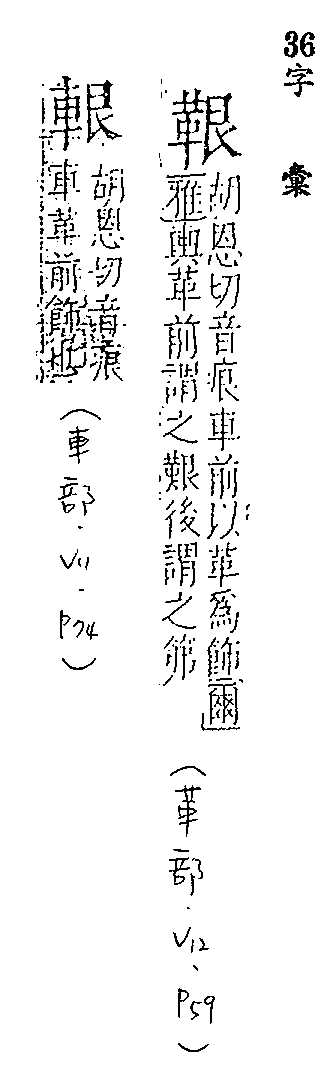 36字 彙
鞎
胡恩切音痕車前以革爲飾爾
雅輿革前謂之艱後謂之笰
(革部.V12、P59)
胡恩切音痕
車革前飾也
(車部.V11.P74)